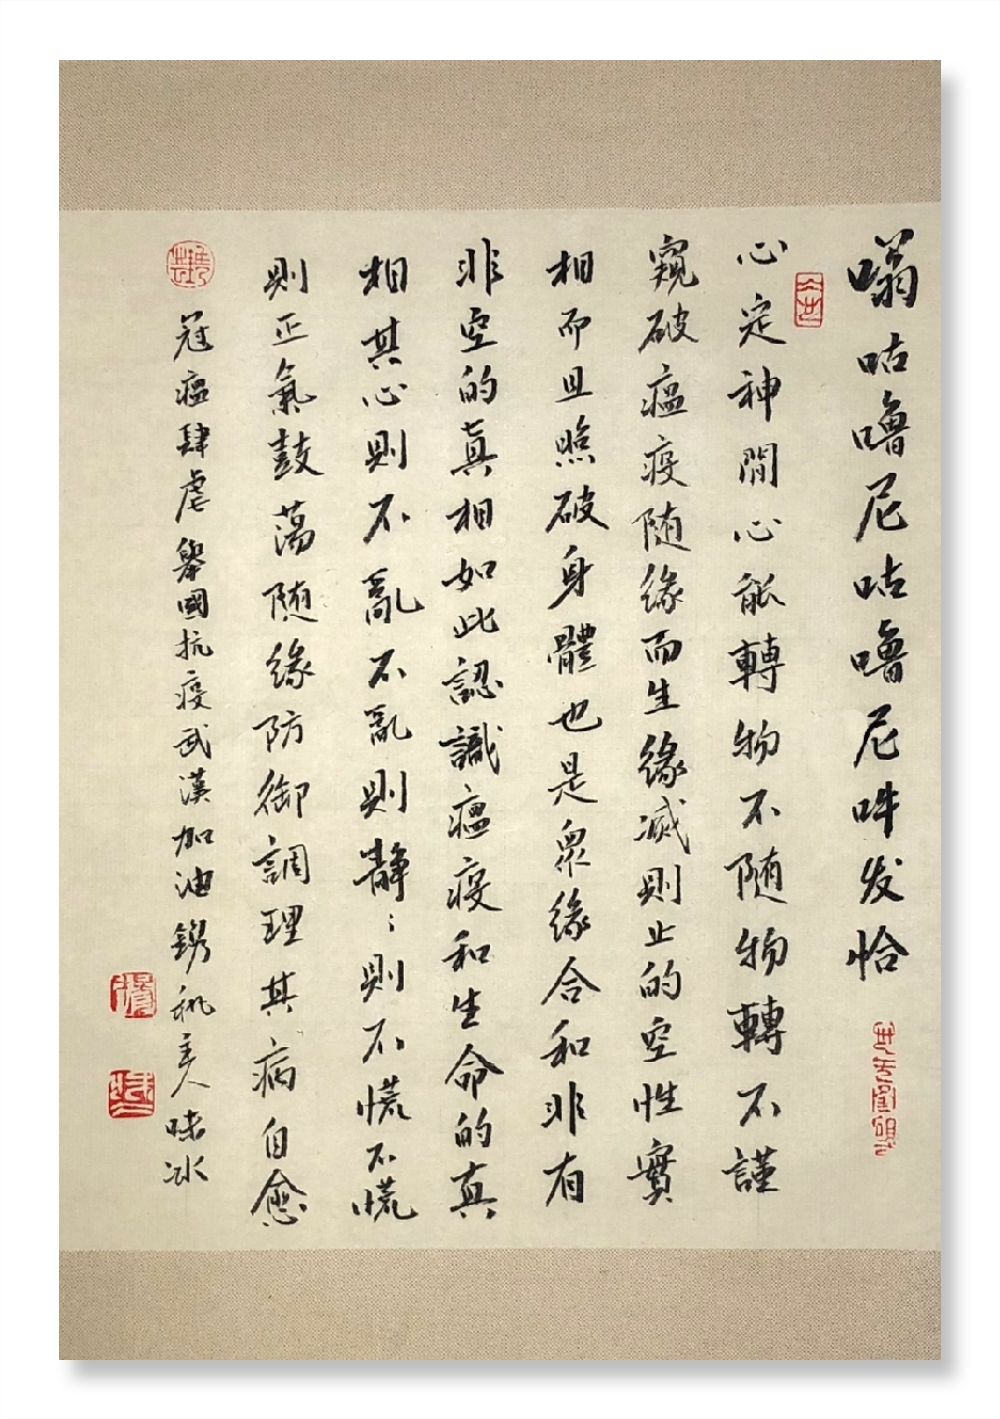 嗡咕嚕尼咕嚕尼吽发恰
心定神閒心能轉物不随物轉不謹
窺破瘟疫随緣而生緣滅則止的空性實
相而且照破身體也是眾緣合和非有
非空的真相如此認識瘟疫和生命的真
相其心則不亂不亂則靜：則不慌不慌
則正氣鼓蕩随緣防御調理其病自愈
冠瘟肆虐舉國抗疫武漢加油鎸秇主人冰